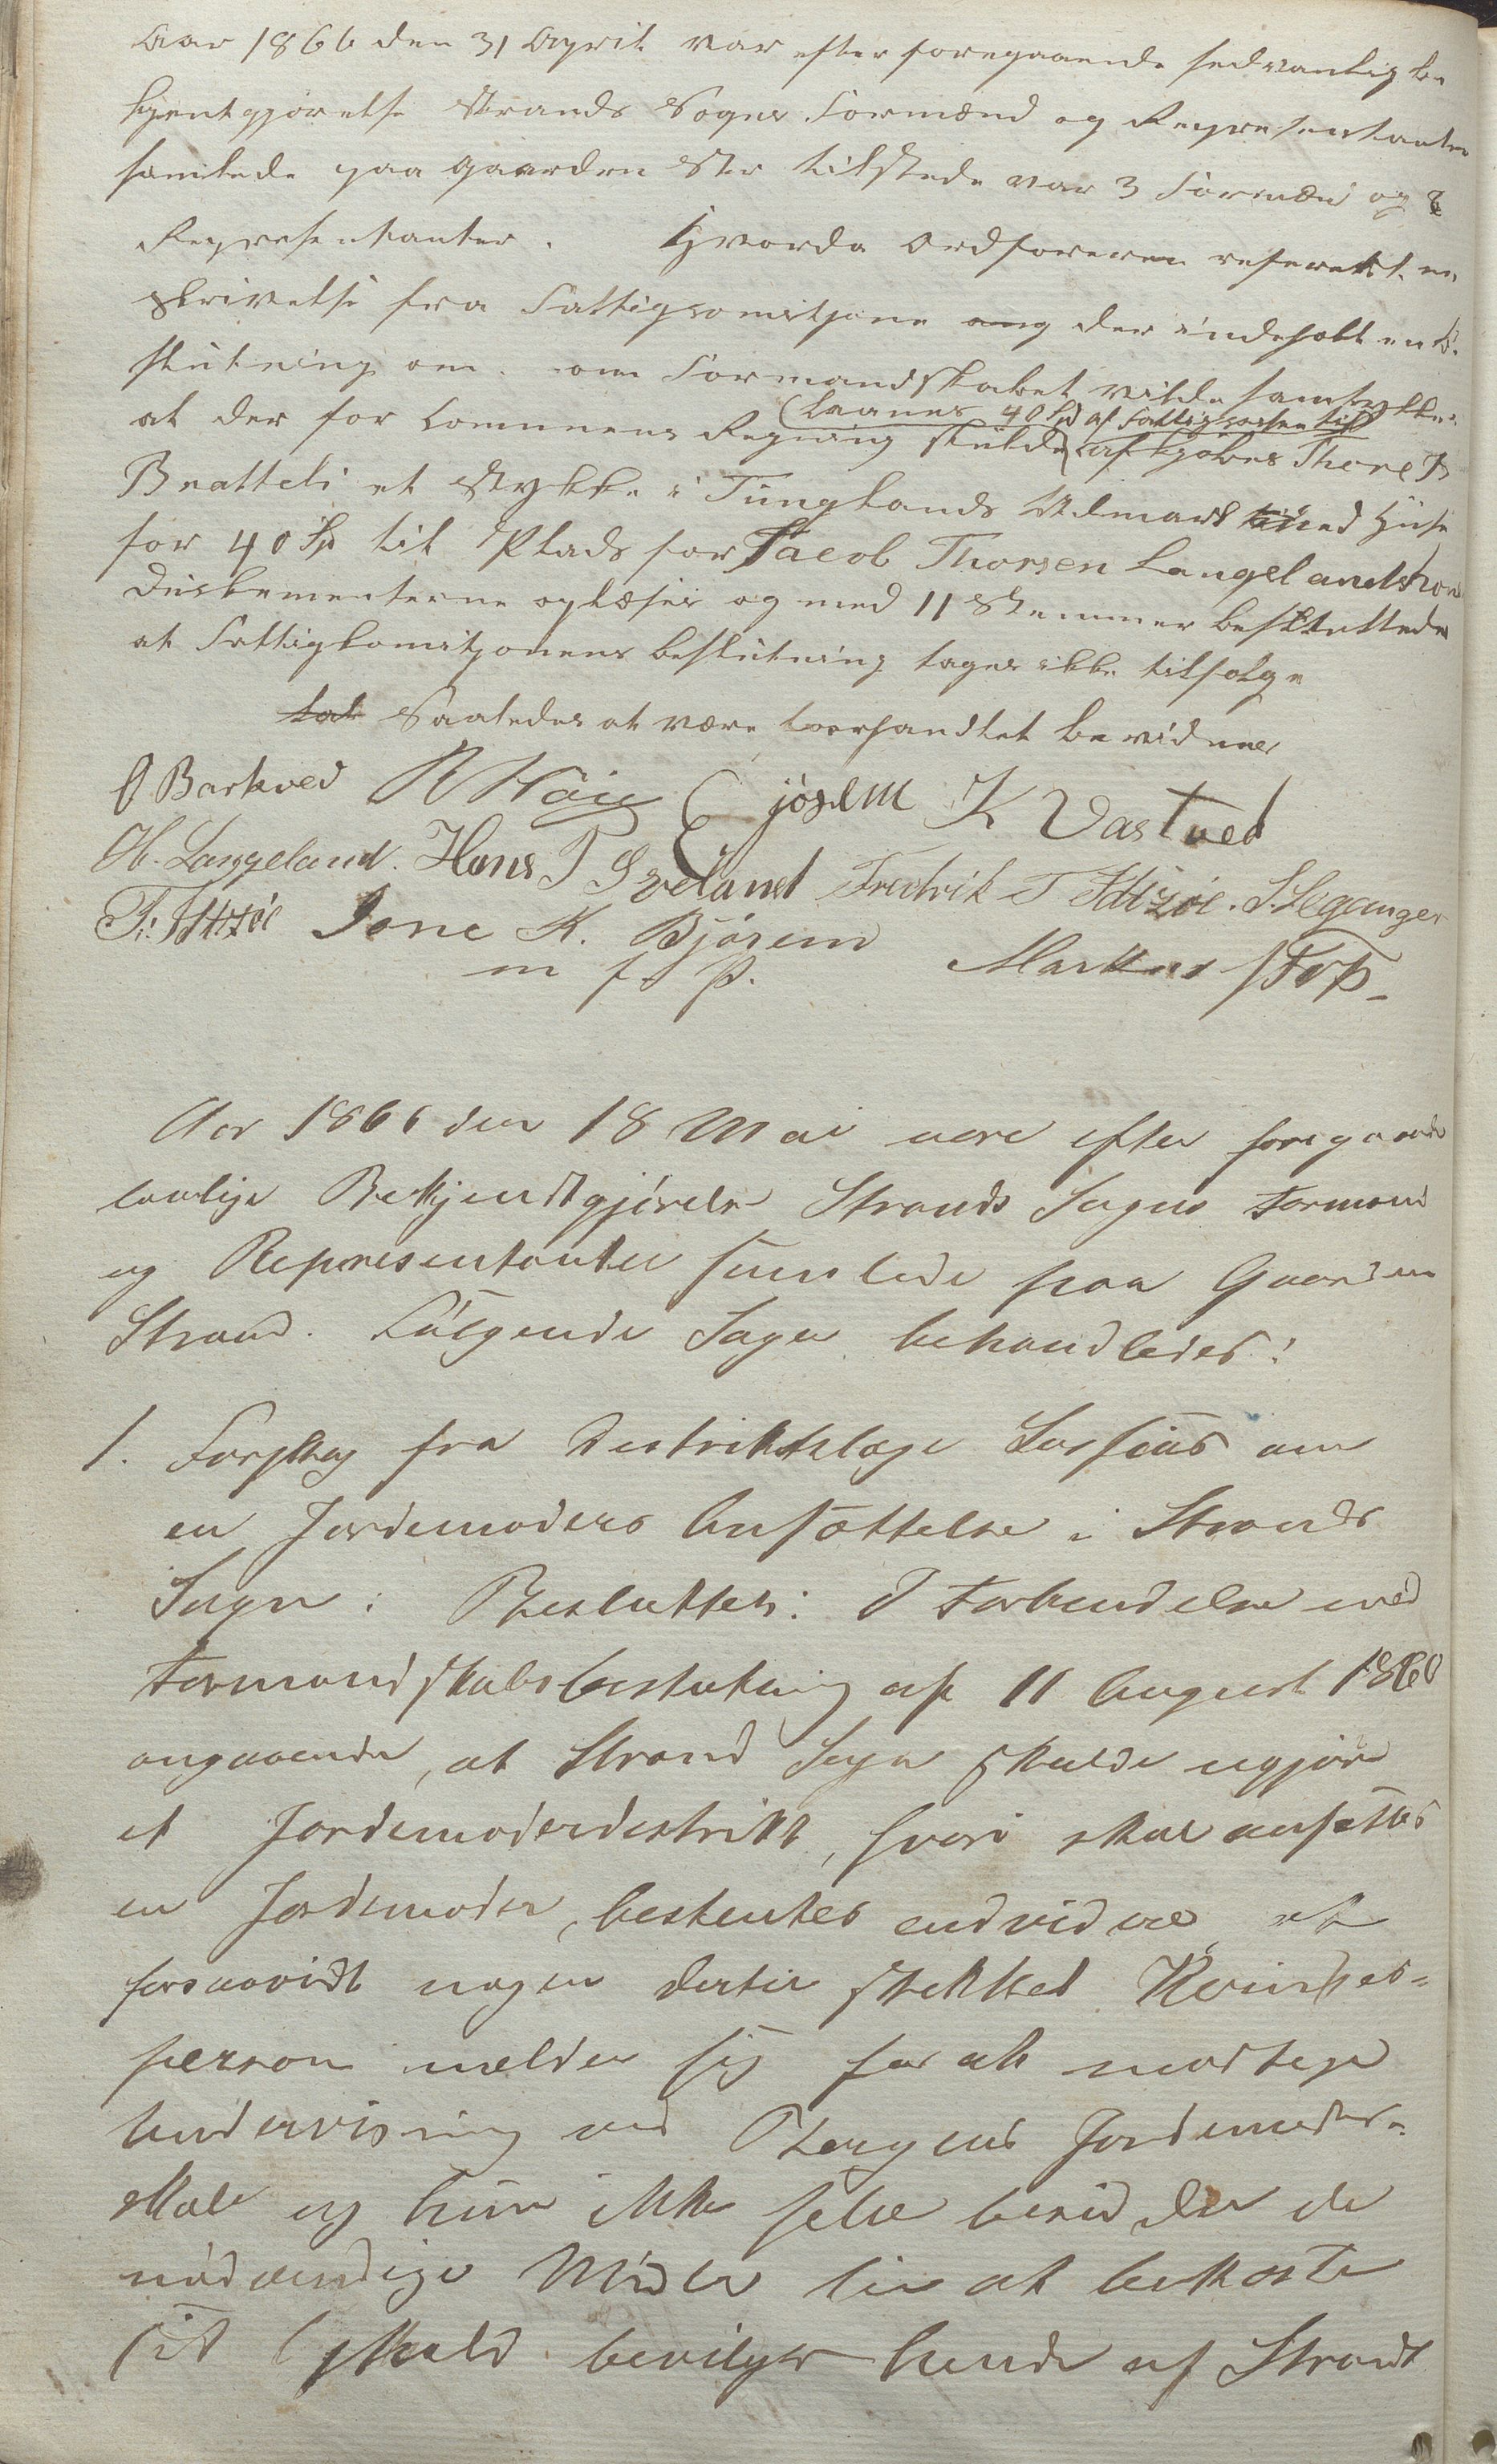 Aar 1866 den 31 April var efter foregaaende sedvanlig be
kjentgjørelse Strands Sogns Formænd og Representanter
samlede paa Gaarden Str tilstede var 3 Formæn og 8
Representanter. Hvorda Ordføreren refereret en
skrivelse fra Fattigcomitjone ang der indeholt en Be
slutning om. om Formandskabet vilde samtykke.
at der for Comunens Regning skulde (laanes 40 Spd af Fattigcassen til) afkjøbes Thore J
Bratteli et Stykke i Tunglands Udmark med Huse
for 40 Sp til Plads for Jacob Thorsen Langelandshoe
Duskomenterne oplæses og med 11 Stemmer besluttedes
at Fattigkomitjonens beslutning tages ikke tilfølge
tat Saaledes at være forhandlet bevidner
O Barkved R Høie E jøsem K Vastved
H. Langeland. Hans T Sveland Fredrik T Idtzøe. S. Heganger
T. Idtzøe Jone K. Bjørem Markus Top
m f P.
Aar 1866 den 18 Mai vare efter foregaaende
lovlige Bekjendtgjørelse Strands Sogns Formænd
og Representanter samlede paa Gaarden
Strand. Følgende Sager behandledes:
1. Forslag fra Distriktslæge Larsens om
en Jordemoders Ansættelse i Strands
Sogn: Besluttet: I Forbindelse med
Formandskabsbeslutning af 11 August 1860
angaaende, at Strand Sogn skulde ugjøre
et Jordemoderdistrikt, hvori skal ansættes
en Jordemoder, besluttes endvidere, at
forsaavidt nogen dertil skikket Kvindes-
person melder sig for at modtage
Undervisning ved Bergens Jordemoder-
skole og hun ikke selv besidder de
nødvendige Midler til at bekoste
sit Ophold bevilges hende af Strands